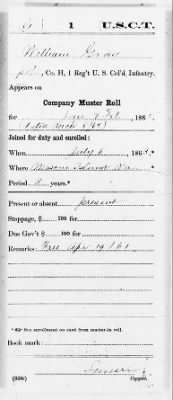 G 1 U.S.C.T.
William Gray
, Co. H, 1 Reg't U. S. Col'd Infantry.
Appears on
Company Muster Roll
for Jan & Feb, 186
Joined for duty and enrolled:
When July 6, 186 .*
Where Masons Island Va
Period 3 years.*
Present or absent present
Stoppage, $ 100 for
Due Gov't $ 100 for
Remarks: Free Apr 19 / 61
*See enrollment on card from muster-in roll.
Book mark:
(358c) Copyist.